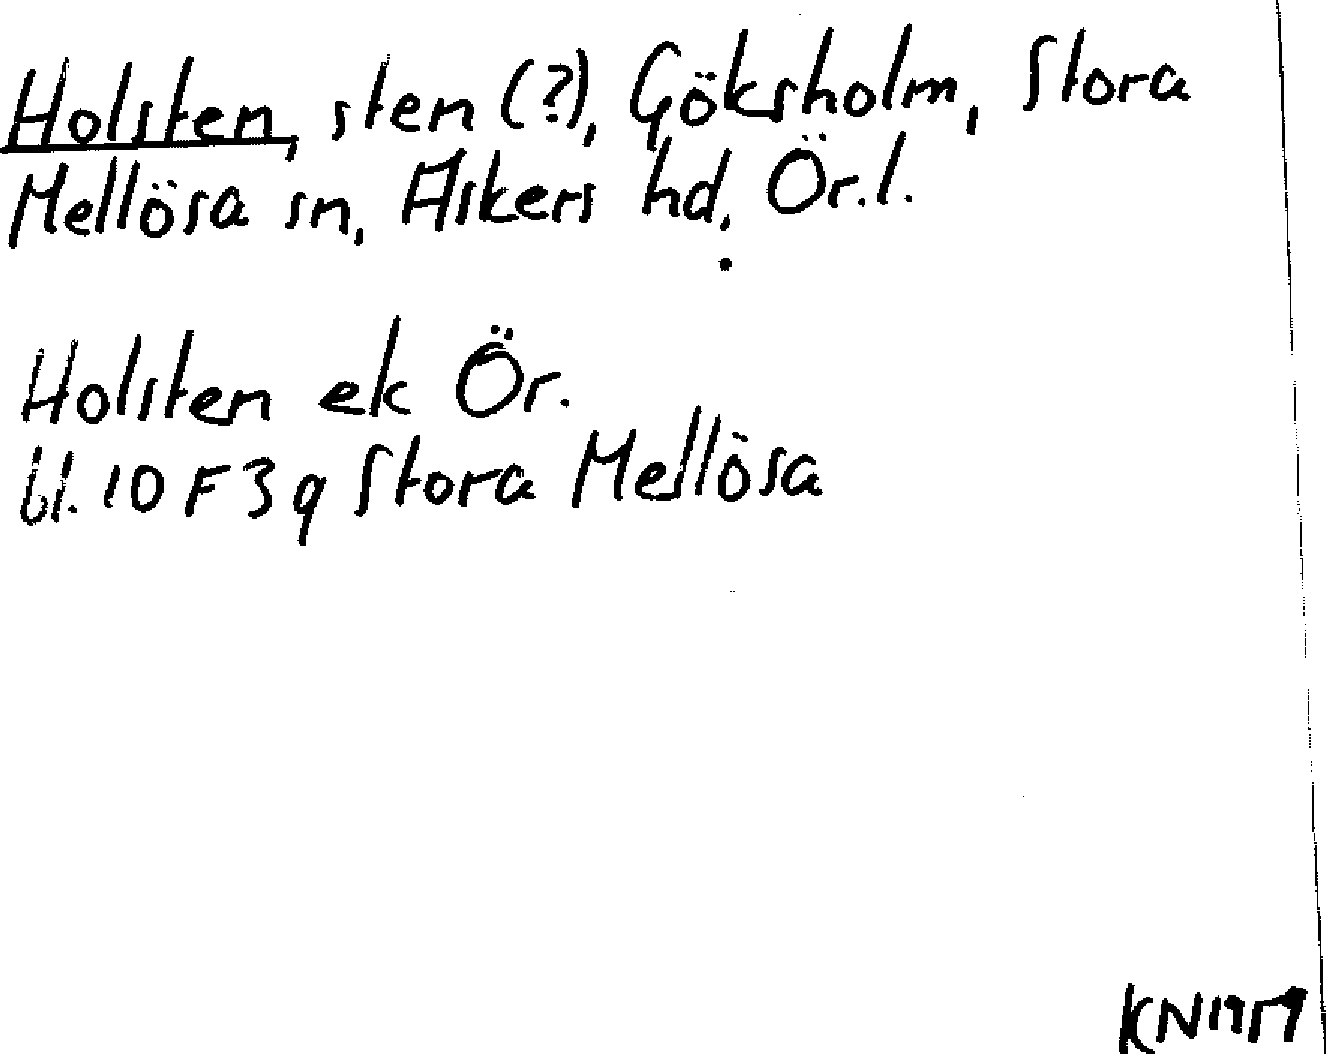 Holsten, sten (?), Göksholm, Stora
Mellösa sn, Askers hd, Ör.l.
Holsten ek Ör.
bl. 10 F 3 q Stora Mellösa
KN